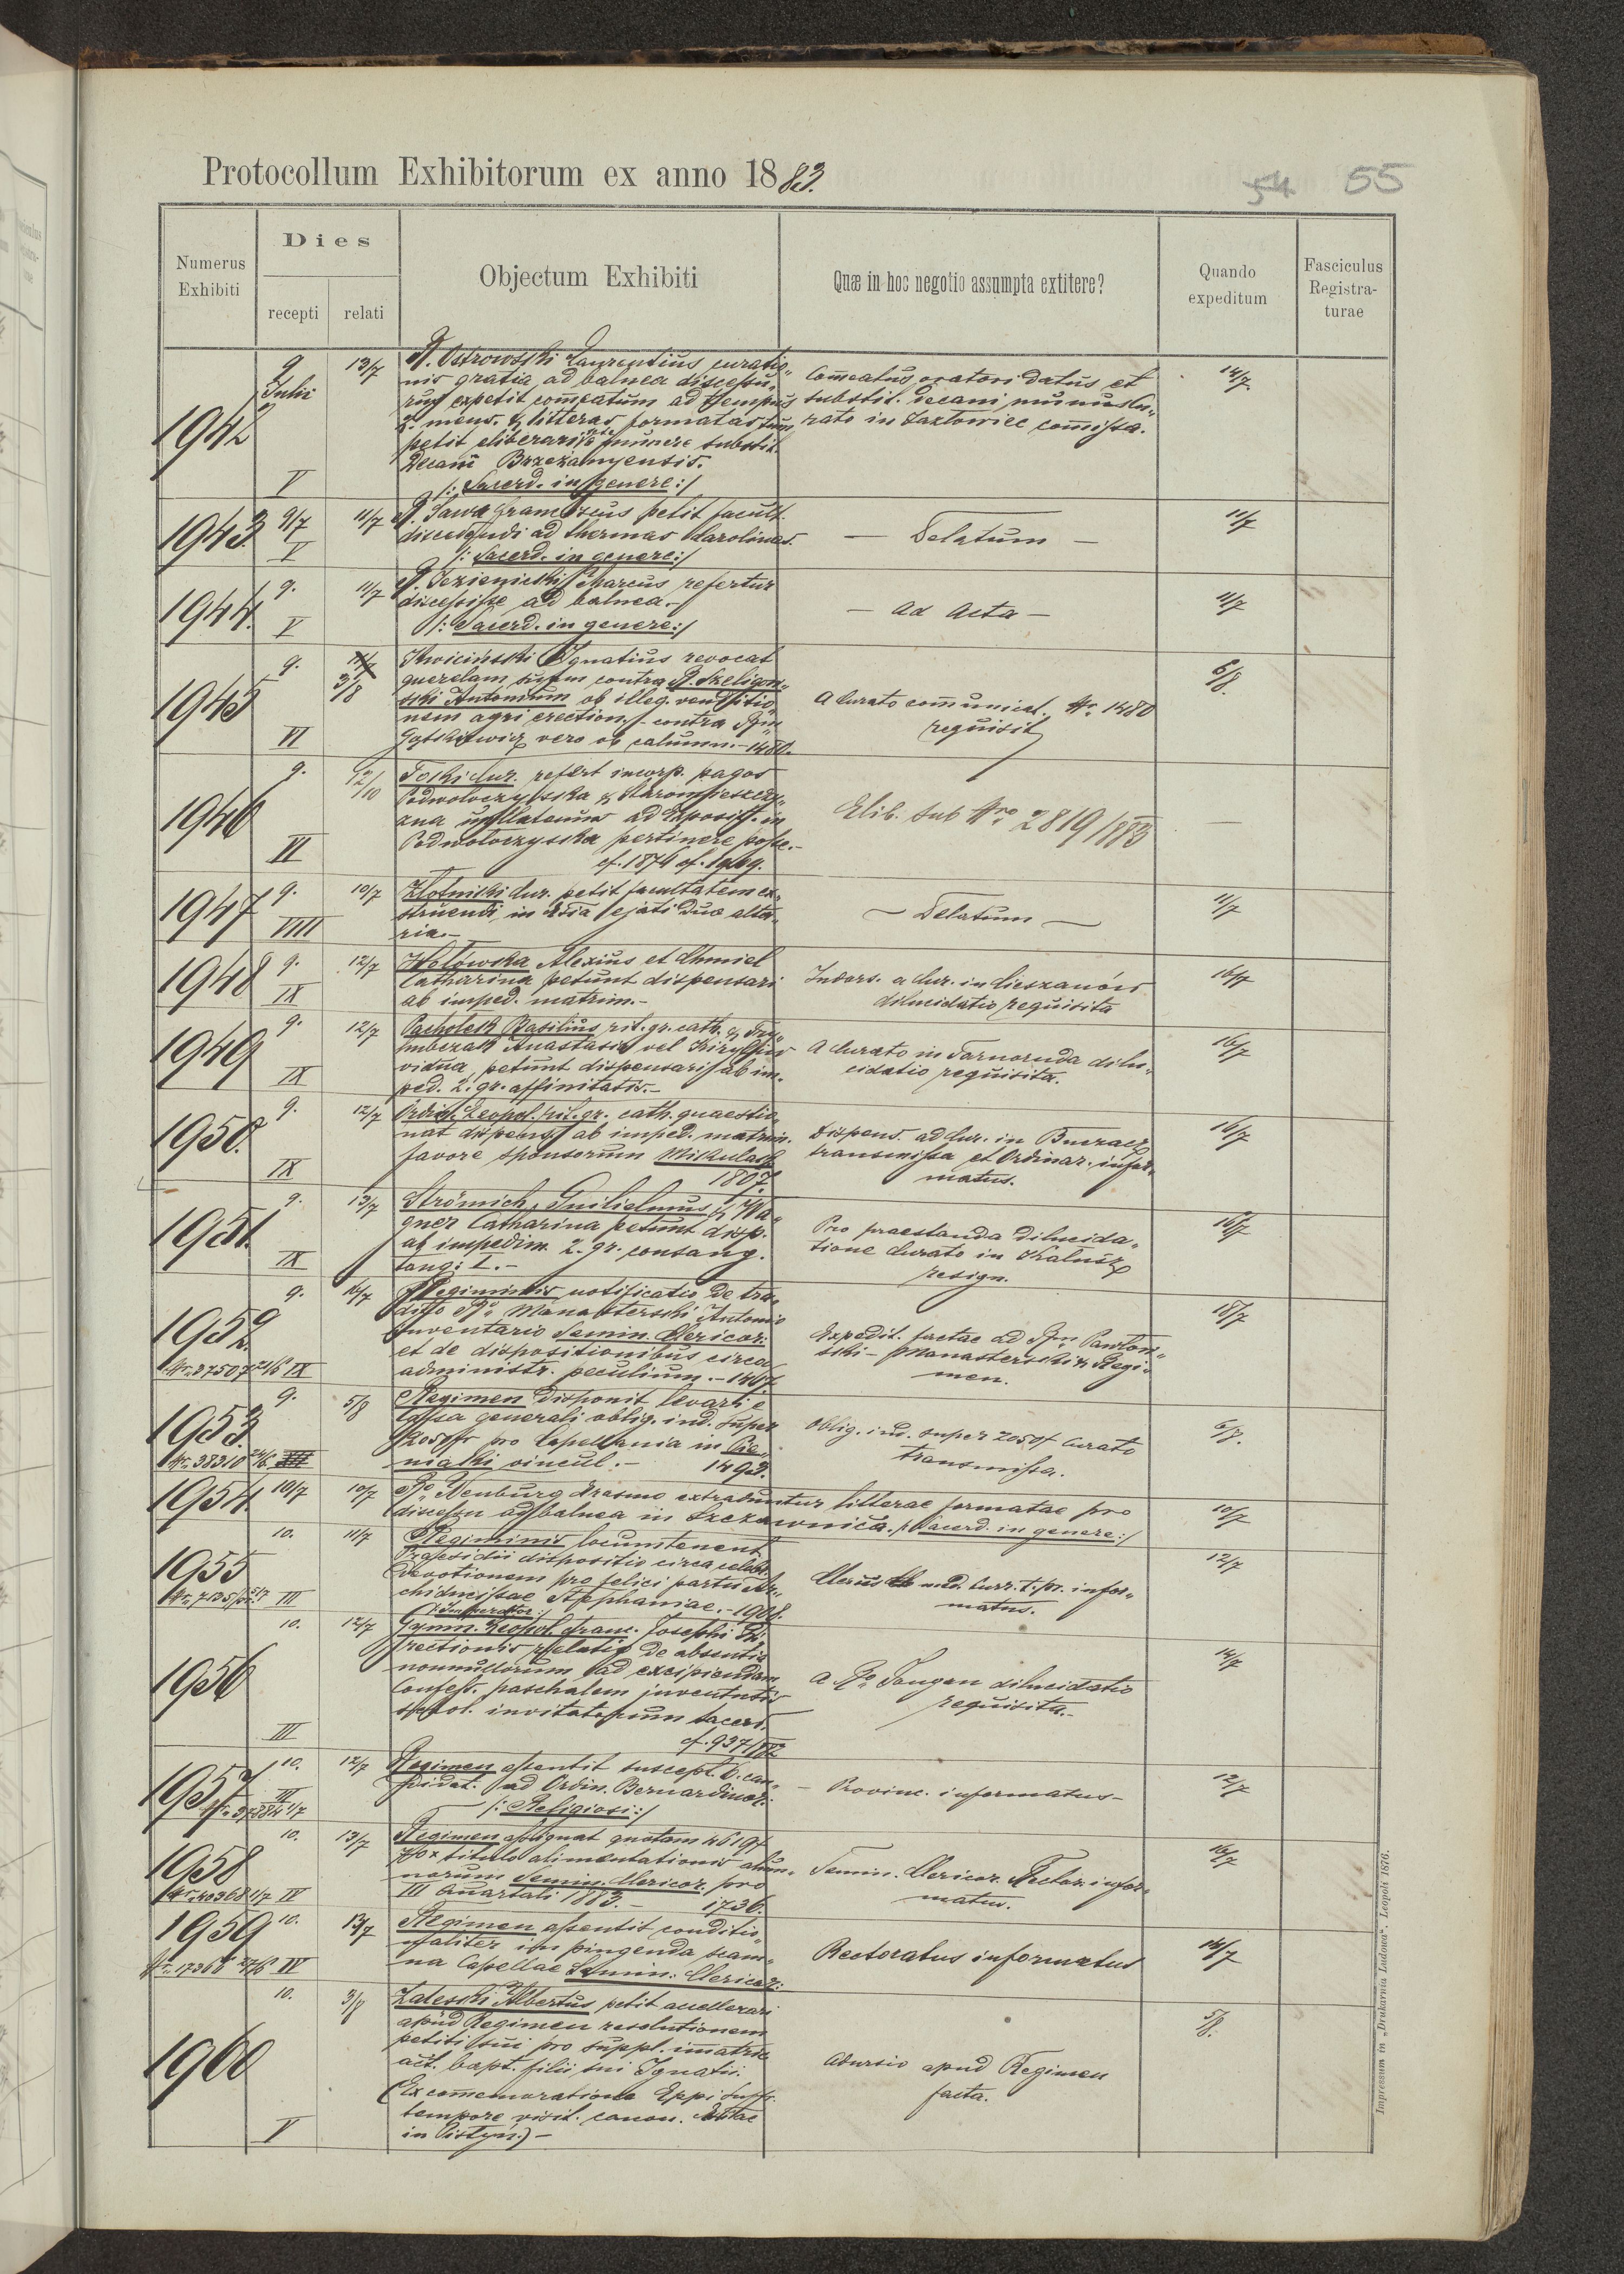 Protocollum Exhibitorum ex anno 1883.
54 55
Numerus Exhibiti
Dies
recepti relati
Objectum Exhibiti
Quæ in hoc negotio assumpta extitere?
Quando expeditum
Fasciculus Registra-turae
1942
9 Julii
V
13/7
R. Ostrowski Laurentius curatio„
nis gratia, ad balnea discessu„
rus expetit com̄eatum ad tempus
2. mens. & litteras formatas tum
petit eliberari a munere substit.
Decani Brzezanyensis.
/: Sacerd. in genere :/
Com̄eatus oratori datus et
substit. decani munus Cu„
rato in Jazłowiec com̄issa.
14/7
1943
9/7
V
11/7
R. Sawa Franciscus petit facult.
discedendi ad thermas Carolinas.
/: Sacerd. in genere :/
— Delatum —
11/7
1944.
9.
V
11/7
R. Jezienicki Marcus refertur
discessisse ad balnea.—
/: Sacerd. in genere :/
— Ad Acta —
11/7
1945
9.
VI
3/8
Kwiciński Ignatius revocat
querelam suam contra R. Szeligow„
ski Antonium ob illeg. venditio„
nem agri erection. – contra
vero ob calumn. – 1480.
A Curato com̄unicat. Nr. 1480
requisit
6/8.
1946
9.
VI
12/10
Toki Cur. refert incorp. pagos
Podwołoczyska &
ad Exposit. in
Podwołoczyska pertinere posse.–
cf. 1874 cf. 1969.
Elib. sub Nro 2819/883
—
1947
9.
VIII
10/7
Złotniki Cur. petit facultatem ex„
struendi in ejati duo alta„
ria.–
— Delatum —
11/7
1948
9.
IX
12/7
Alexius et Chmiel
Catharina petunt dispensari
ab imped. matrim.–
Indors. a Cur. in Cieszanów
dilucidatio requisita
16/7
1949
9.
IX
12/7
Pacholek Basilius rit. gr. cath. &
Anastasia vel
viana, petunt dispensari ab im„
ped. 2. gr. affinitatis.–
A Curato in Tarnoruda dilu„
cidatio requisita.
16/7
1950.
9.
IX
12/7
Ordin. Leopol. rit. gr. cath. quaestio„
nat dispens. ab imped. matrim.
favore sponsorum Mikulasz
1807.
Dispens. ad Cur. in Buczacz
transmissa et Ordinar. infor„
matus.
16/7
1951.
9.
IX
13/7
Strömich Guilielmus & Wa„
gner Catharina petunt disp.
ab impedim. 2. gr. consang.
tang: I.–
Pro praestanda dilucida„
tione Curato in Kałusz
resign.
16/7
1952.
Nr. 37507 21/6
9.
IX
14/7
Regiminis notificatio de tra„
dito Rdo Manasterski Antonio
Inventario Semin. Clericor.
et de dispositionibus circa
administr. peculium.– 1407
Expedit. factae ad Rm Pawłow„
ski – Manasterski & Regi„
men.
18/7
1953.
Nr. 38310 24/6
9.
5/8
Regimen disponit levari e
Cassa generali oblig. ind. super
2050 f pro Capellania in Pie„
niaki vincul.– 1493.
Oblig. ind. super 2050 f Curato
transmissa.
6/8.
1954
10/7
10/7
Rdo Neuburg Erasmo extraduntur litterae formatae pro
discessu ad balnea in Szczawnica. /: Sacerd. in genere :/
10/7
1955
10.
III
11/7
Regiminis locumtenent.
Praesidii dispositio circa celebr.
devotionem pro felici partu Ar„
chiducissae Stephaniae.– 1908.
Clerus med. Curr. t. pr. infor„
matus.
12/7
1956
10.
III
12/7
Gymn. Leopol. Franc. Josephi Di„
rectionis relatio de absentia
nonnullorum ad excipiendam
Confess. paschalem juventutis
schol. invitatorum sacerd.
cf. 937/882
a Rdo Tangen dilucidatio
requisita.–
14/7
1957
10.
III
12/7
Regimen assentit suscept. 6. can„
didat. ad Ordin. Bernardinor.
/: Religiosi :/
— Provinc. informatus –
12/7
1958
Nr. 40368 1/7
10.
IV
13/7
Regimen assignat quotam 4619 f
ex titulo alimentationis alum„
norum Semin. Clericor. pro
III Quartali 1883.– 1736.
Semin. Clericor. Rector infor„
matus.
16/7
1959
10.
IV
13/7
Regimen assentit conditio„
naliter in pingenda scam„
na Capellae Semin. Clericor.:
Rectoratus informatus
14/7
1960
10.
V
3/8
Zaleski Albertus petit accellerari
apud Regimen resolutionem
petiti sui pro suppl. im̄atric.
act. bapt. filii sui Ignatii.
(Ex com̄emoratione Eppi Suffr.
tempore visit. canon.
in Pistyn.) –
Adursio apud Regimen
facta.
5/8.
Impressum in „Drukarnia Ludowa“. Leopoli 1876.